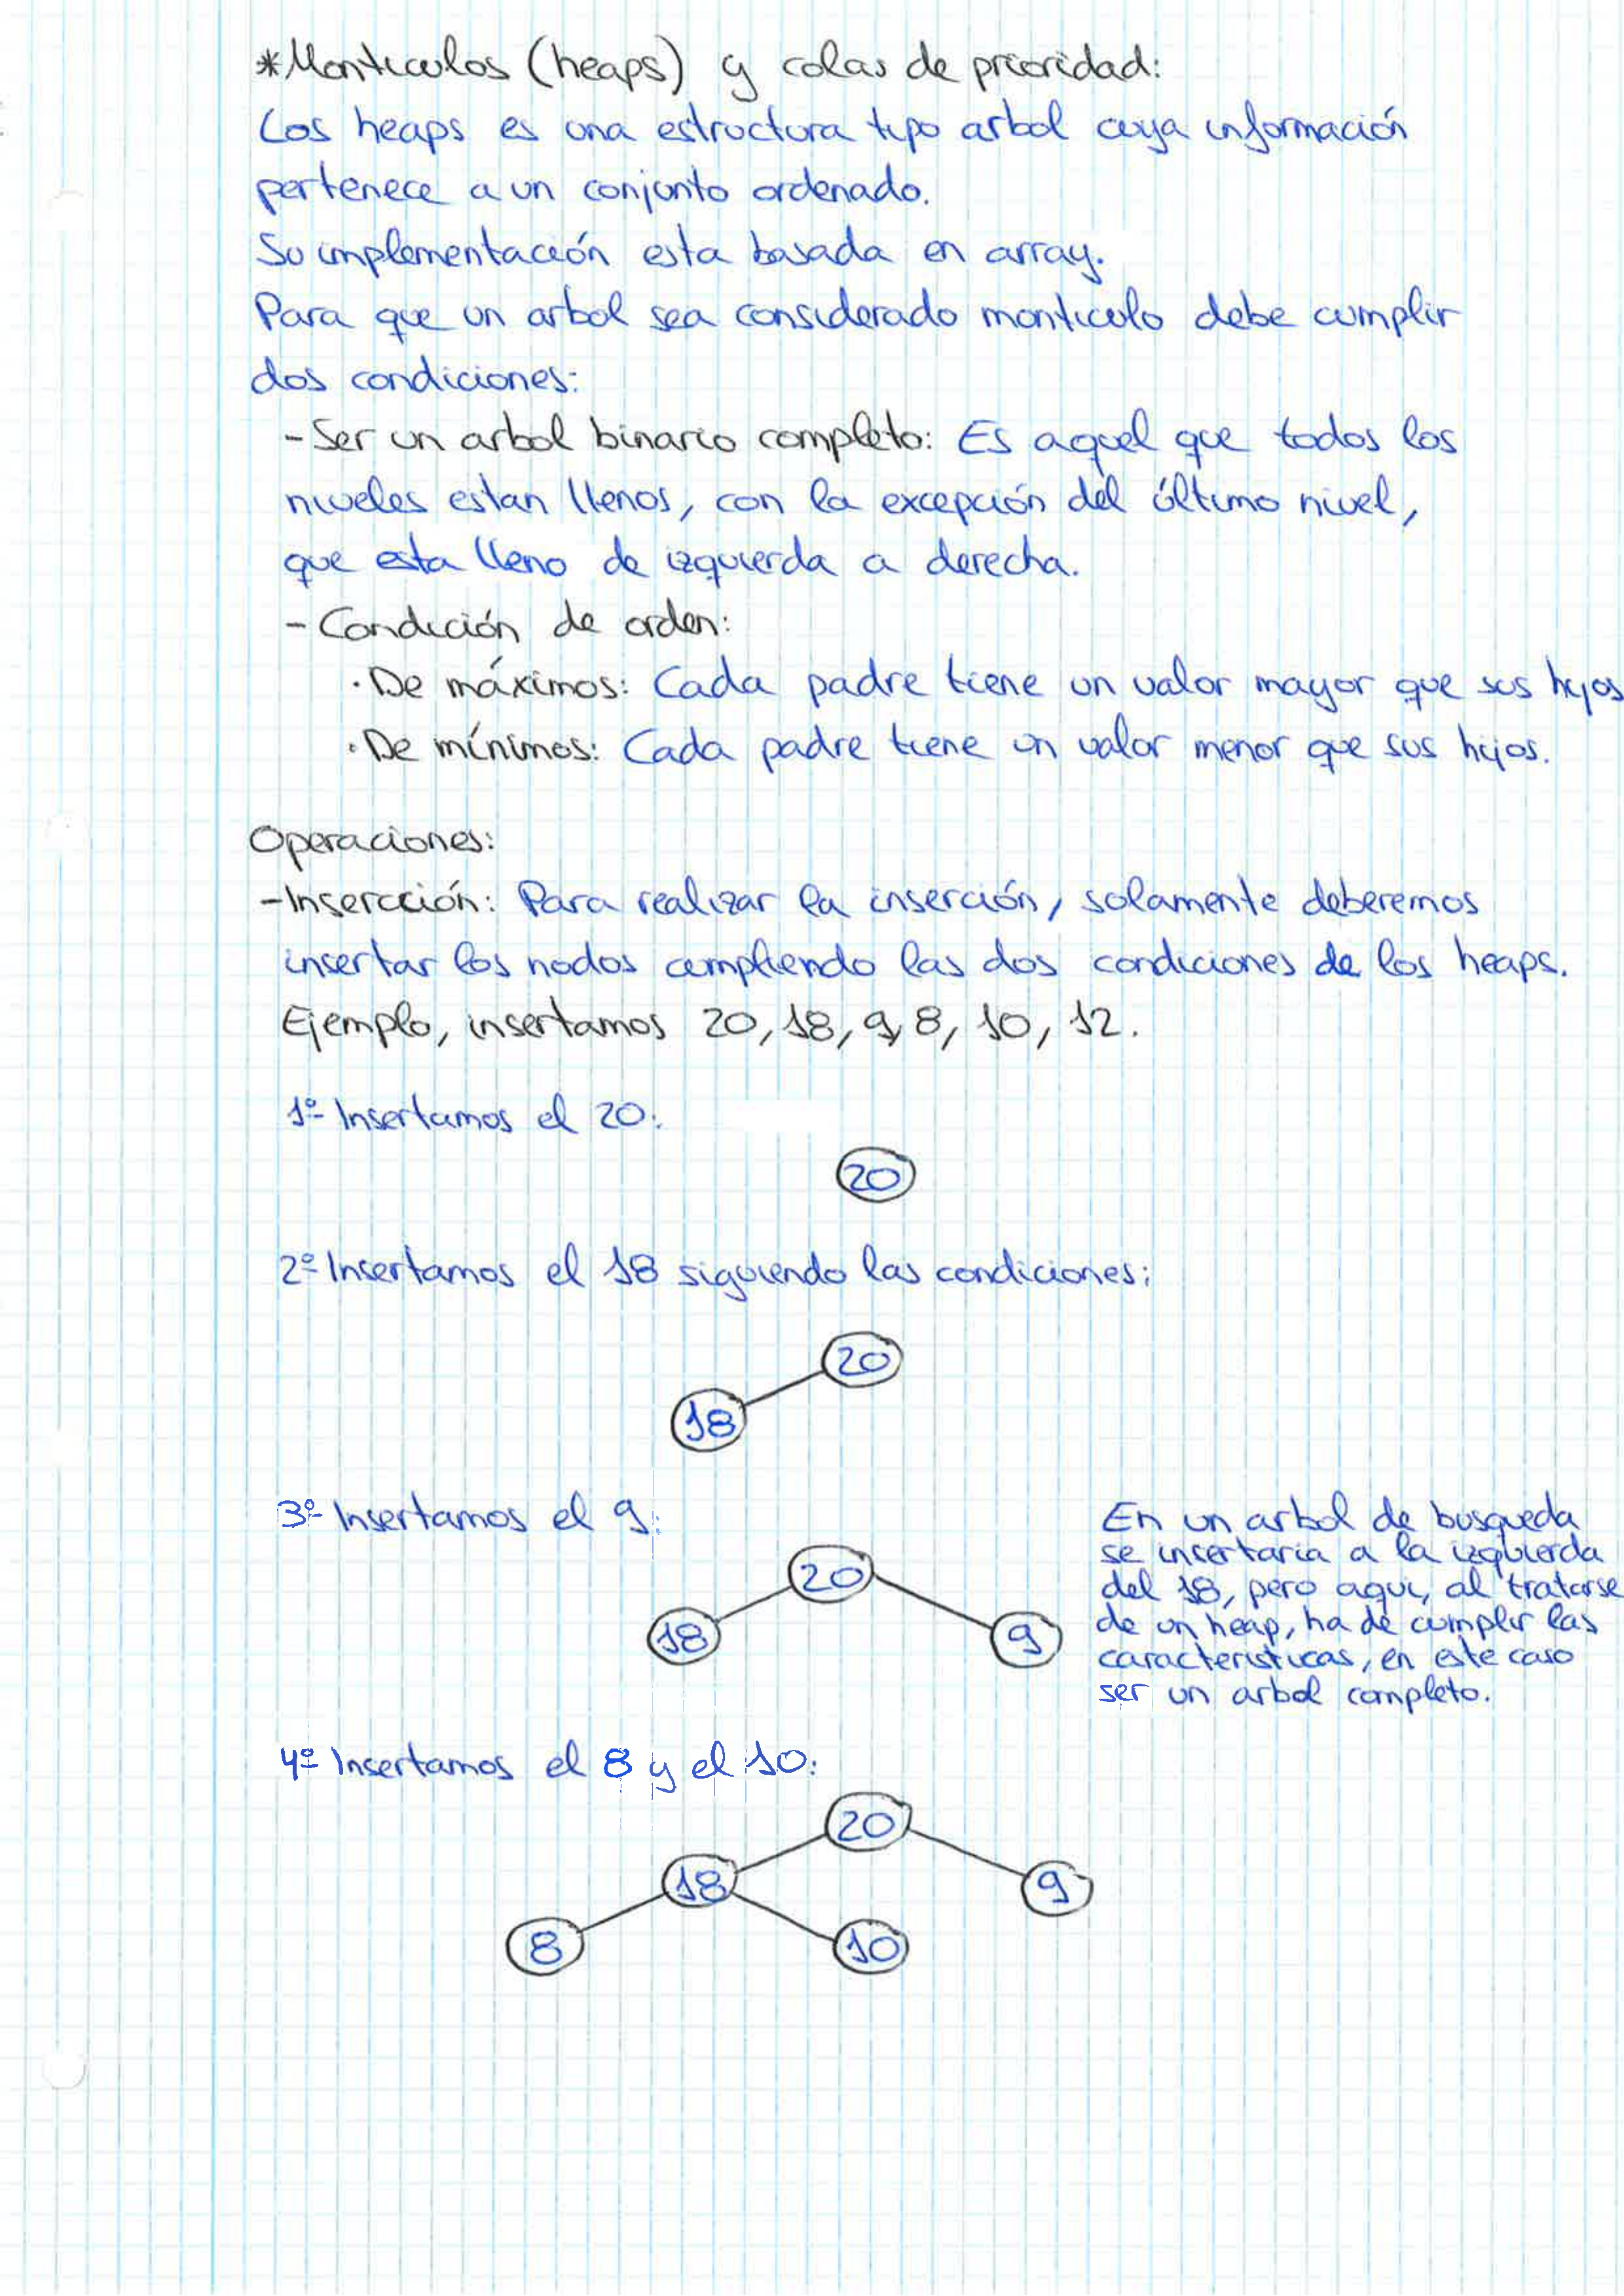 *Monticulos (heaps) y colas de prioridad:
Los heaps es una estructura tipo arbol cuya información
pertenece a un conjunto ordenado.
Su implementación esta basada en array.
Para que un arbol sea considerado monticulo debe cumplir
dos condiciones:
- Ser un arbol binario completo: Es aquel que todos los
niveles estan llenos, con la excepción del último nivel,
que esta lleno de izquierda a derecha.
- Condición de orden:
· De máximos: Cada padre tiene un valor mayor que sus hijos
· De mínimos: Cada padre tiene un valor menor que sus hijos.
Operaciones:
- Insercción: Para realizar la inserción, solamente deberemos
insertar los nodos cumpliendo las dos condiciones de los heaps.
Ejemplo, insertamos 20, 18, 9, 8, 10, 12.
1º Insertamos el 20:
20
2º Insertamos el 18 siguiendo las condiciones:
20
18
3º Insertamos el 9:
20
18
9
En un arbol de busqueda
se insertaria a la izquierda
del 18, pero aqui, al tratarse
de un heap, ha de cumplir las
caracteristicas, en este caso
ser un arbol completo.
4º Insertamos el 8 y el 10:
20
18
9
8
10